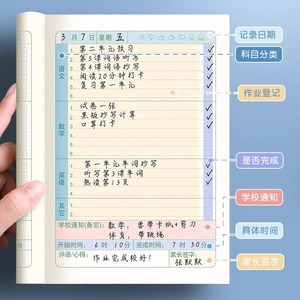 3月7日 星期五
记录日期
科目分类
语文
1. 第二单元预习
2. 第3课词语听写
3. 第4课词语抄写
4. 阅读20分钟打卡
5. 复习第一单元
作业登记
数学
试卷一张
黑板抄写计算
口算打卡
英语
第一单元单词抄写
听写第3课单词
熟读第13页
是否完成
其它
学校通知(备忘): 数学: 要带卡纸+剪刀
体育: 带跳绳
学校通知
开始时间: 6时10分 完成时间: 7时30分
具体时间
评语/心得: 作业完成较好!
家长签字:
张默默
家长签字